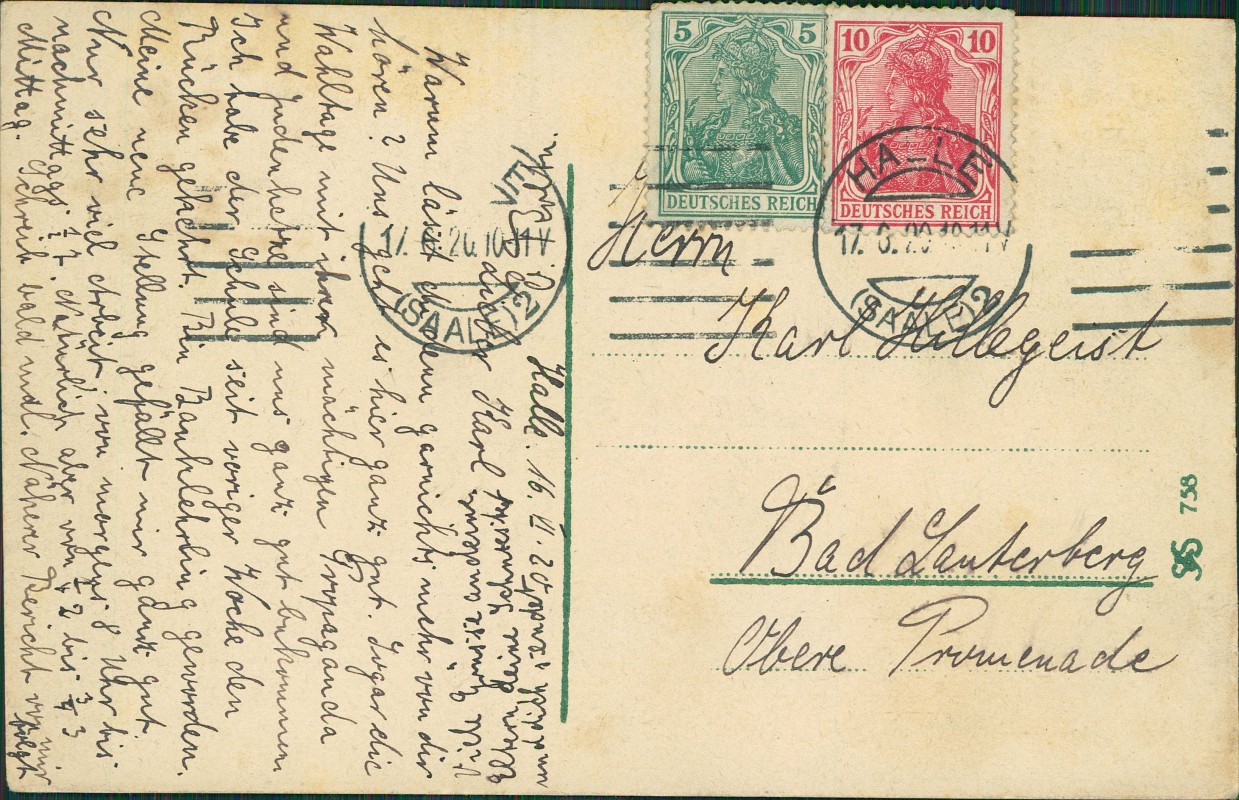 5 5
DEUTSCHES REICH
10 10
DEUTSCHES REICH
HA-LE
17. 6. 20 10-11V
(SAALE) 2
17. 20. 10-11V
(SAALE) 2
Herrn
Karl Hillegeist
Bad Lauterberg
Obere Promenade
758
Halle. 16. VI. 20
Lieber Karl!
Warum läßt du denn garnichts mehr von dir
hören? Uns geht es hier ganz gut. Sogar die
Wahltage mit ihrer mächtigen Propaganda
und Judenhetze sind uns ganz gut bekommen
Ich habe der Schule seit voriger Woche den
Rücken gekehrt. Bin Banklehrling geworden.
Meine neue Stellung gefällt mir ganz gut.
Nur sehr viel Arbeit von morgens 8 Uhr bis
nachmittags ½7. Natürlich aber von ½2 bis ¾3
Mittag. Schreib bald mal. Näherer Bericht von mir
folgt
Viele Grüsse
deine
und dich sendet